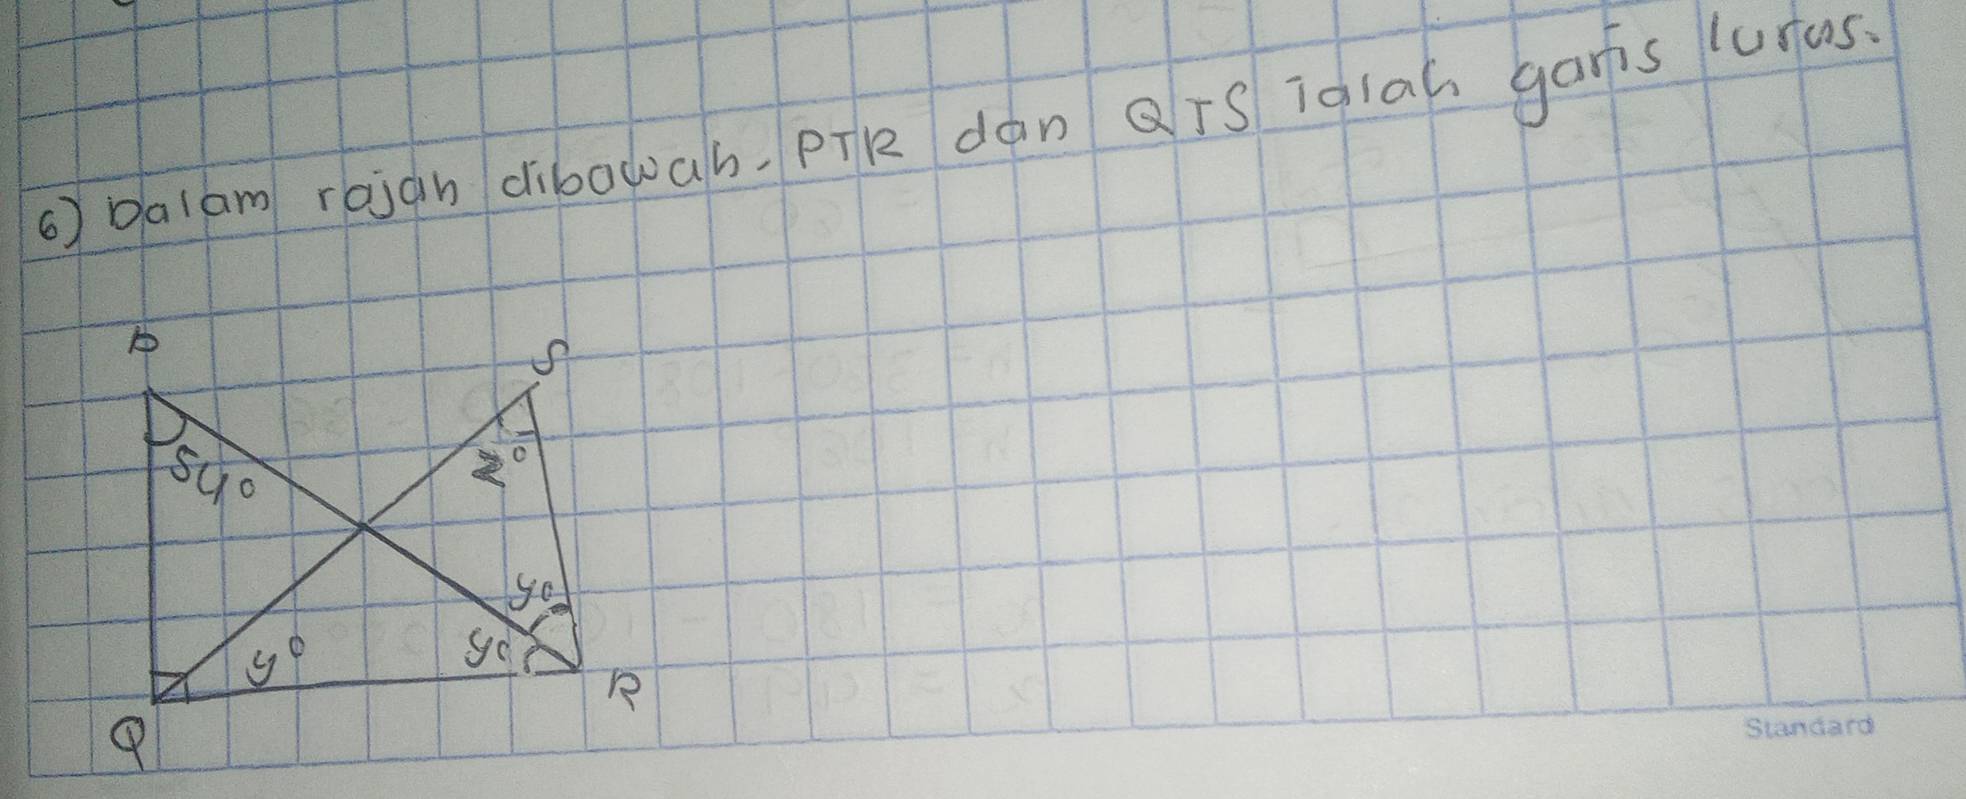 6) Dalam rajah dibawah, PTR dan QTS ialah garis lurus.
P
S
54°
z°
y°
y°
y°
R
Q
Standard